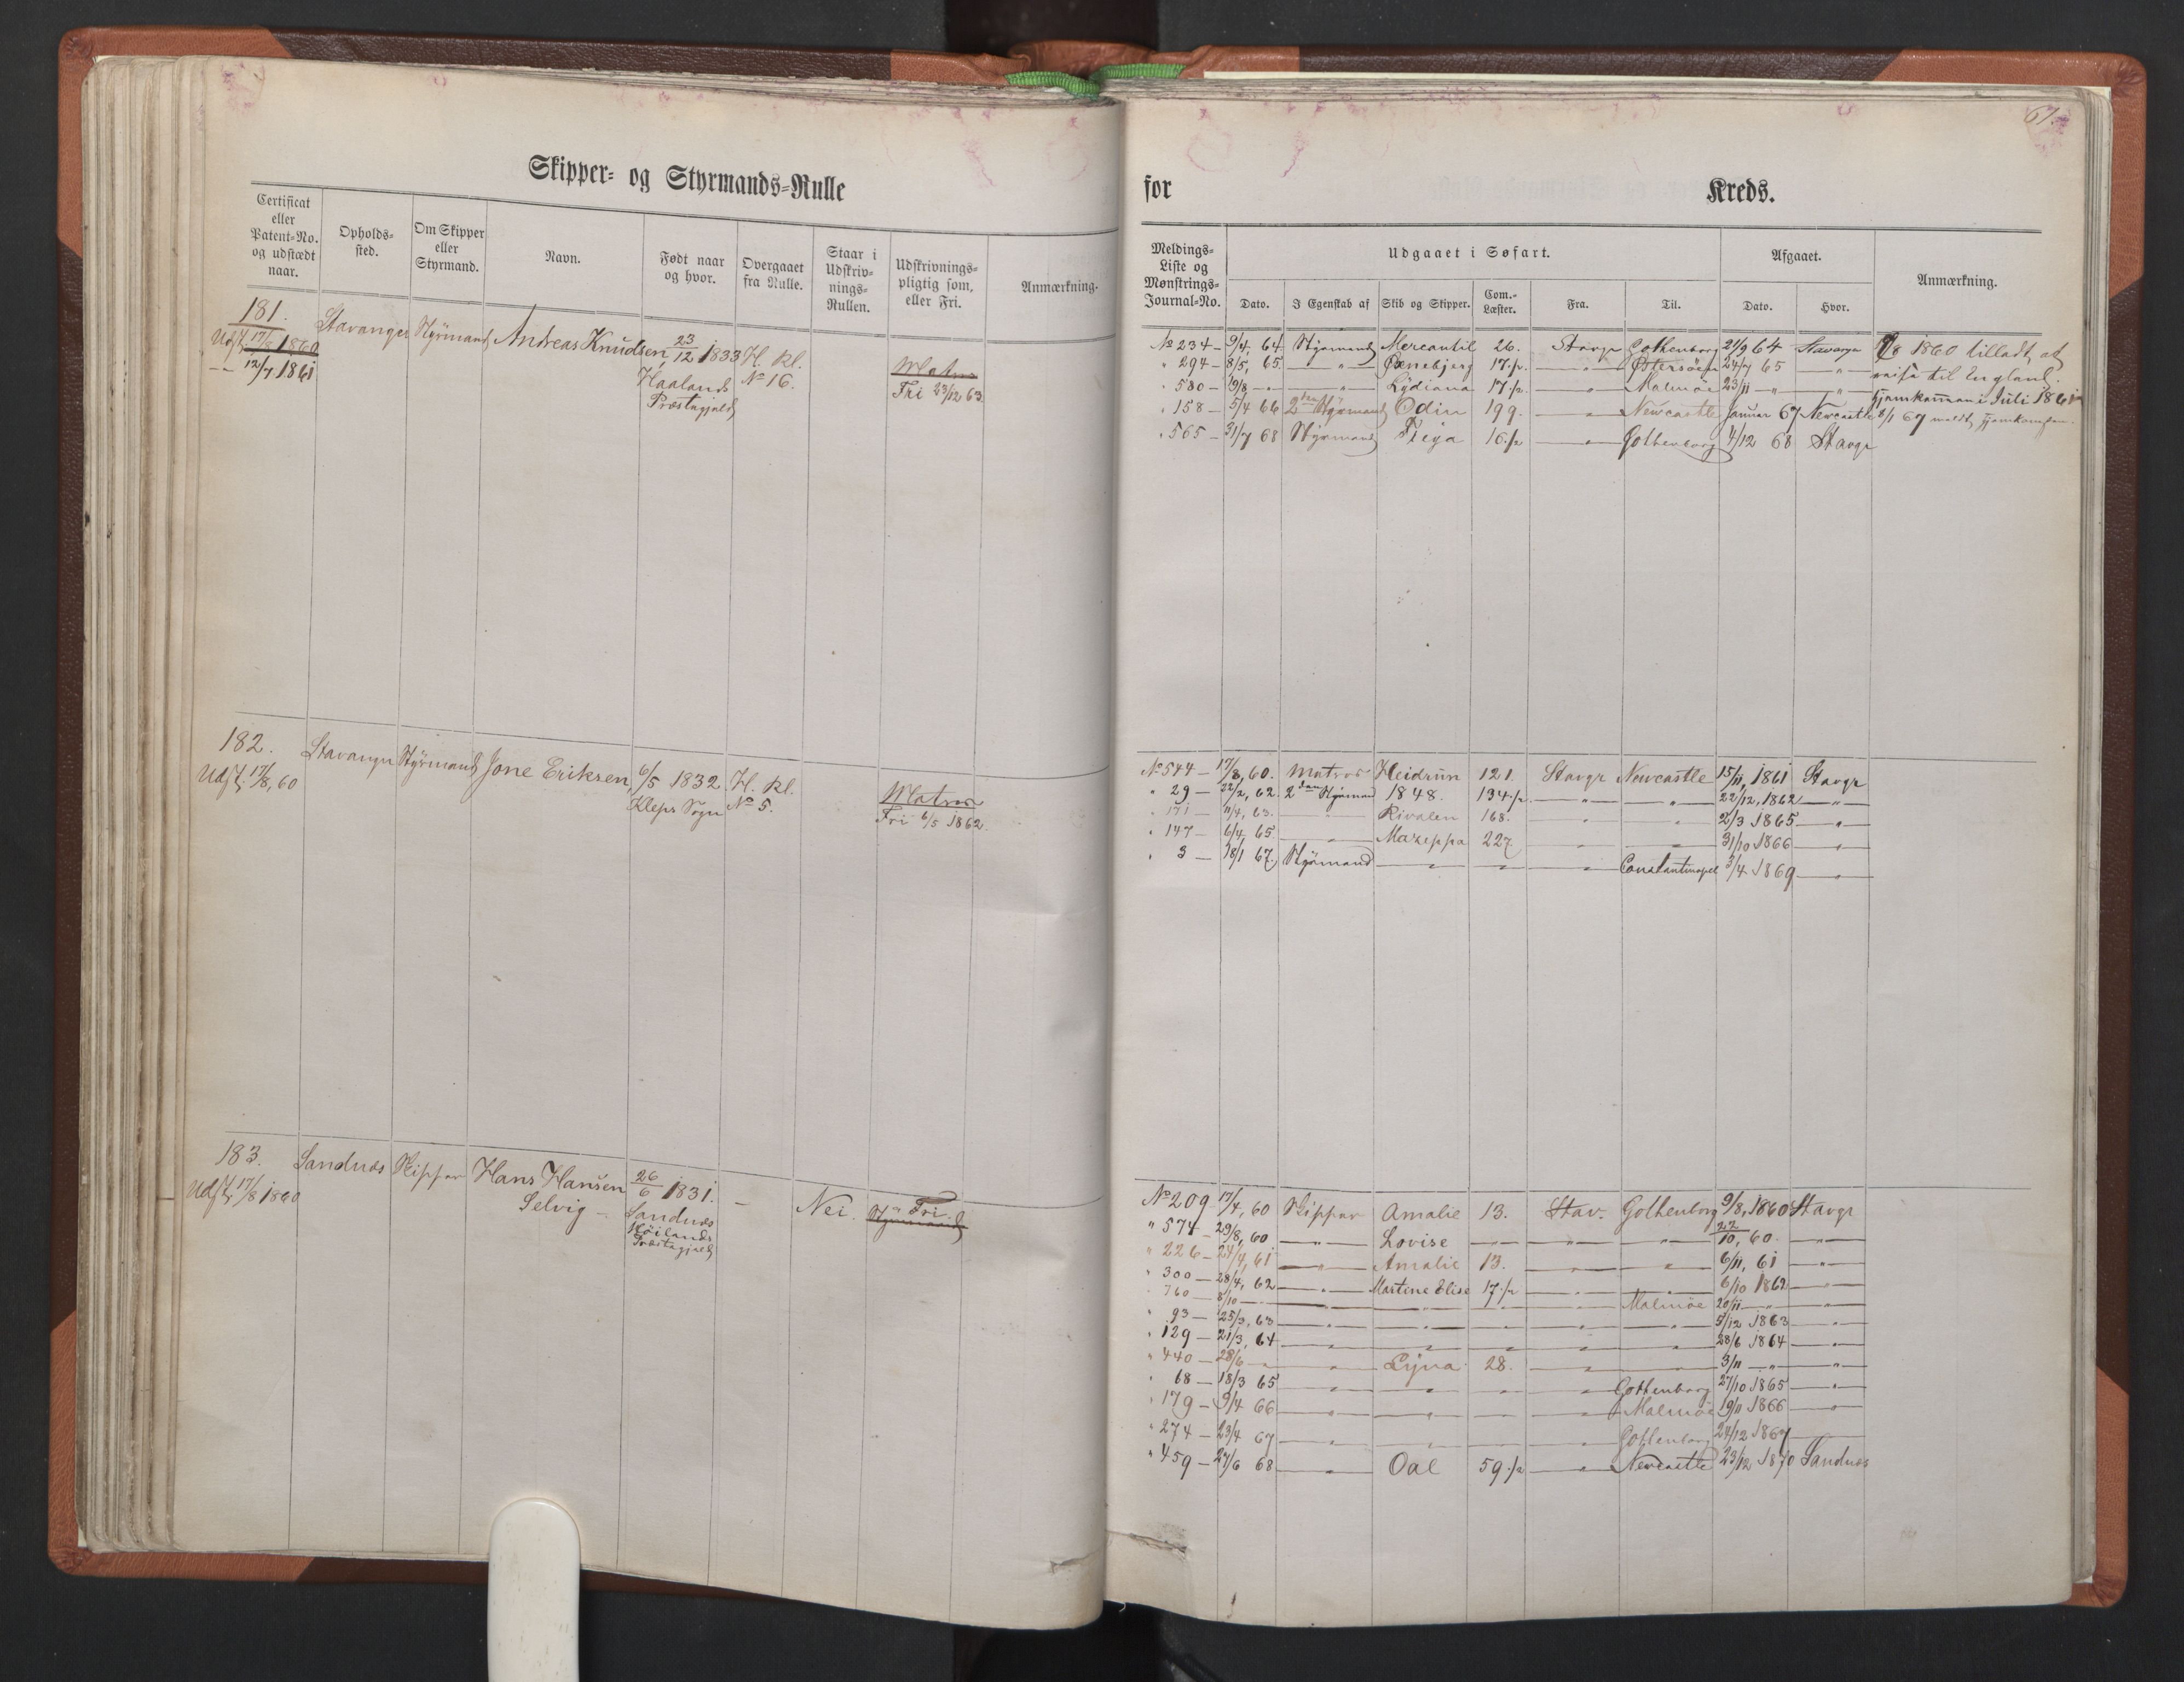 67.
Skipper- og Styrmands-Rulle
for Kreds.
Certificat eller Patent-No. og udstædt naar.
Opholds-sted.
Om Skipper eller Styrmand.
Navn.
Født naar og hvor.
Overgaaet fra Rulle.
Staar i Udskriv-nings-Rullen.
Udskrivnings-pligtig som, eller Fri.
Anmærkning.
Meldings-Liste og Mønstrings-Journal-No.
Udgaaet i Søfart.
Afgaaet.
Anmærkning.
Dato. I Egenskab af Skib og Skipper. Com.-Læster. Fra. Til. Dato. Hvor.
181. Stavanger Styrmand Andreas Knudsen, 23/12 1833 H. Kl.
Udst. 17/8 1860 Haalands No 16. Matros
— " — 12/7 1861 Præstegjeld Fri 23/12 63
No 234 — 9/4, 64 Styrmand Mercantil 26. Stavgr Gothenborg 21/9 64 Stavanger
" 294 — 8/5, 65. — " — 17 1/2 — " — Østersöen 24/7 65 — " —
" 580 — 19/8 — " — — " — Lydiana 17 1/2 — " — Malmöe 23/11 — " — — " —
" 158 — 5/4 66 2den Styrmand Odin 199. — " — Newcastle Januar 67 Newcastle
" 565 — 31/7 68 Styrmand Freya 16 1/2 — " — Gothenborg 4/12 68 Stavgr
1860 tilladt at
reise til England.
Hjemkommen i Juli 1861
8/1 67 meldt Hjemkomsten.
182. Stavanger Styrmand Jone Eriksen, 6/5 1832 H. Kl.
Udst. 17/8, 60 Kleps Sogn No 5. Matros
Fri 6/5 1862.
No 544 — 17/8, 60. Matros Heidrun 121. Stavgr Newcastle 15/11, 1861 Stavgr
" 29 — 22/2, 62. 2den Styrmand 1848. 134 1/2 — " — — " — 22/12, 1862 — " —
" 171 — 11/4, 63. — " — Rivalen 168. — " — — " — 2/3 1865 — " —
" 147 — 6/4, 65 — " — Mazeppa 227 — " — — " — 31/10 1866 — " —
" 3 — 18/1 67. Styrmand — " — — " — — " — Constantinopel 3/4 1869 — " —
183. Sandnæs Skipper Hans Hansen 26/6 1831. — Nei. Fri.
Udst. 17/8 1860 Selvig — Sandnæs Styrmand
Höilands
Præstegjeld
No 209 17/4, 60 Skipper Amalie 13. Stav. Gothenborg 9/8, 1860 Stavgr
" 574 — 29/8, 60 — " — Lovise — " — — " — — " — 22/10, 60. — " —
" 226 — 27/4, 61 — " — Amalie 13. — " — — " — 6/11, 61 — " —
" 300 — 28/4, 62 — " — Martine Elise 17 1/2 — " — — " — 6/10 1862 — " —
" 760 — 8/10 — " — — " — — " — — " — — " — Malmöe 20/11 — " — — " —
" 93 — 25/3, 63 — " — — " — — " — — " — — " — 5/12 1863 — " —
" 129 — 21/3, 64 — " — — " — — " — — " — — " — 28/6 1864 — " —
" 440 — 28/6 — " — — " — 28. — " — — " — 3/11 — " — — " —
" 68 — 18/3 65 — " — — " — — " — — " — Gothenborg 27/10 1865 — " —
" 179 — 9/4 66 — " — — " — — " — — " — Malmöe 19/11 1866 — " —
" 274 — 23/4 67 — " — — " — — " — — " — Gothenborg 24/12 1867 — " —
" 459 — 27/6 68 — " — Oal 59 1/2 — " — Newcastle 23/12 1870 Sandnæs